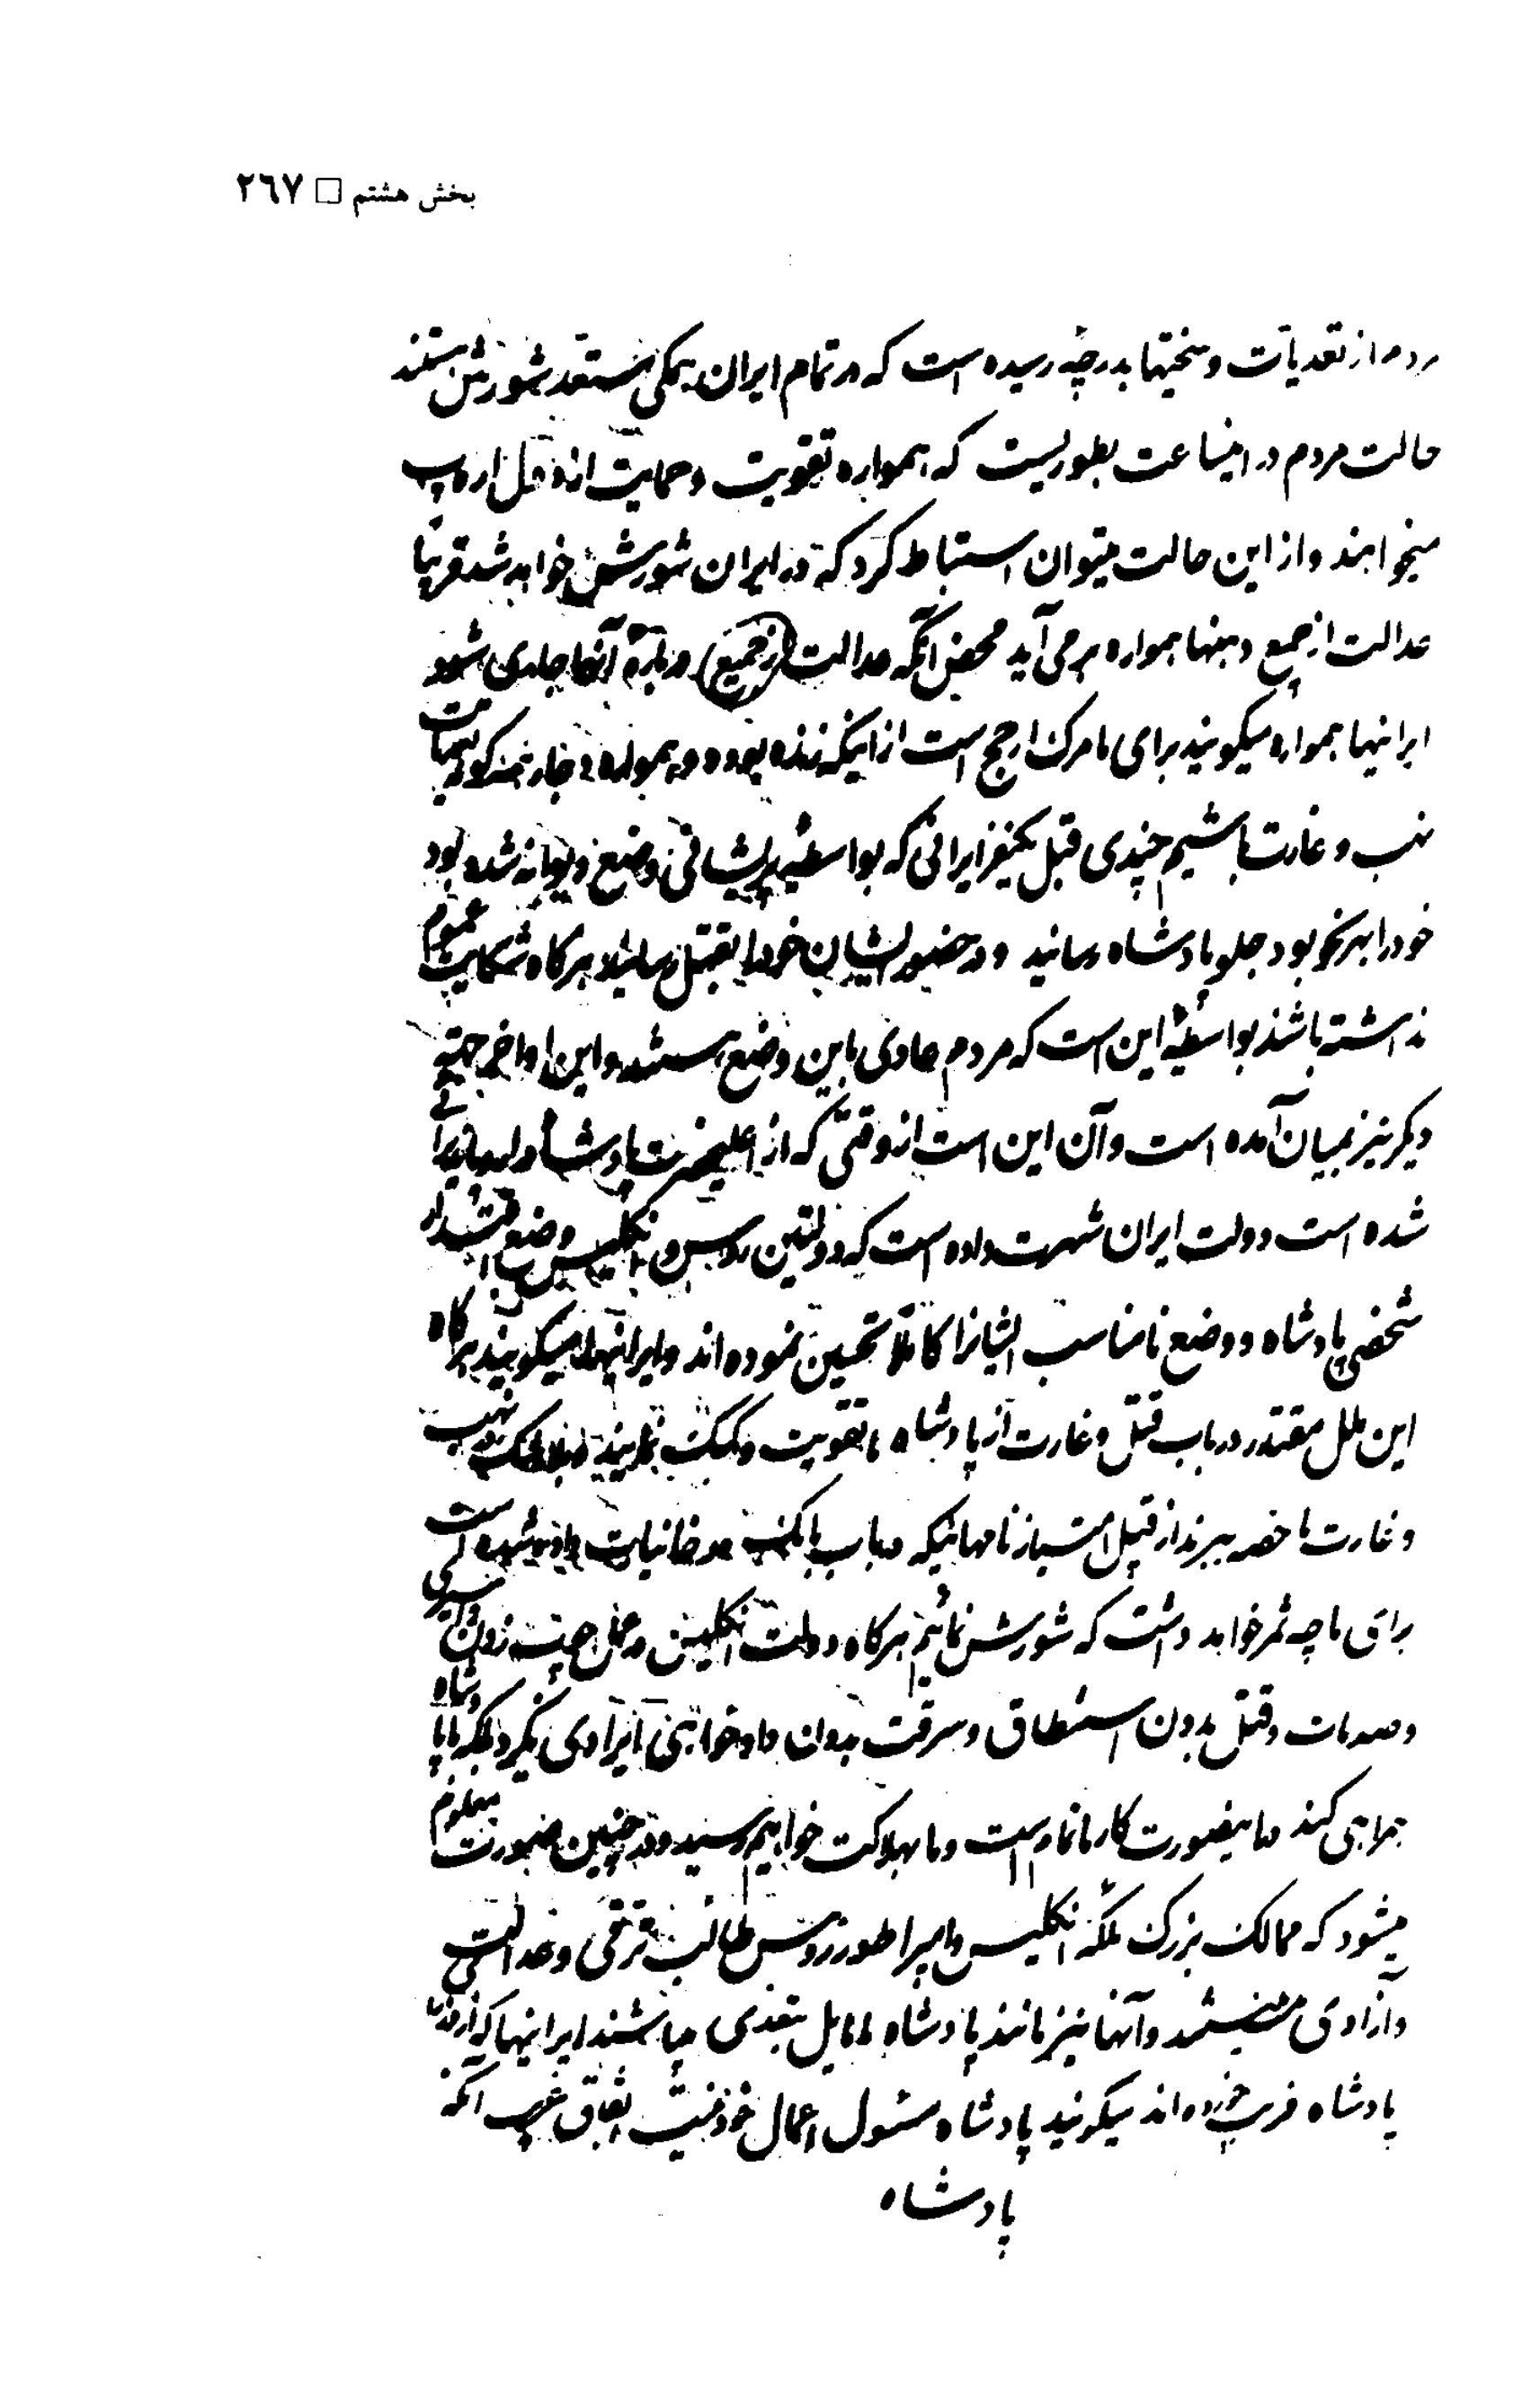 بخش هشتم □ ٢٦٧
مردم از تعدیات و سختیها بدرجهٔ رسیده است که در تمام ایران همکی مستعد شورش هستند
حالت مردم در اینساعت بطوریست که همواره تقویت و حمایت از دول اروپ
میخواهند و از این حالت میتوان استنباط کرد که در ایران شورش خواهد شد قریباً
عدالت از جمیع ذهنها همواره برمی‌آید محض آنکه عدالت (از جمیع) دربارهٔ آنها جاری شود
ایرانیها همواره میکویند برای ما مرک ارجح است از اینکه زنده بوده و همواره دچار
نهب و غارت باشیم چندی قبل یکنفر ایرانی که بواسطهٔ پریشانی وضع دیوانه شده بود
خود را بهر نحو بود جلو پادشاه رسانید و در حضور ایشان خود را بقتل رسانید هرکاه شکایت عموم
نداشته باشند بواسطهٔ این است که مردم عادی باین وضع هستند و این اواخر جهتی
دیکر نیز بمیان آمده است و آن این است از وقتی که از اعلیحضرت پادشاه
شده است دولت ایران شهرت داده است که دولتین روس و انکلیس وضع اقتدار
شخصی پادشاه و وضع نامناسب ایشانرا کاملا تحسین نموده‌اند و ایرانیها میکویند هرکاه
این ملل مقتدر در باب قتل و غارت از پادشاه ما تقویت و کمک نمایند و نهب
و غارت ما حصه ببرند از قبیل امتیاز نامهائیکه در باب بانک و دخانیات داده شده است
برای ما چه ثمر خواهد داشت که شورش نمائیم هرکاه دولت انکلیس در عمل چوب زدن و اسیری
و صدمات و قتل بدون استنطاق و سرقت بدون دادخواهی ایرادی نکیرد بلکه با پادشاه
همراهی کند در اینصورت کار ما تمام است و ما بهلاکت خواهیم رسید و در چنین صورت معلوم
میشود که ممالک بزرک ملکه انکلیس و امپراطور روس طالب ترقی و عدالت
و آزادی نیستند و آنها نیز مانند پادشاه ما مایل بتعدی میباشند ایرانیها که از
پادشاه فریب خورده‌اند میکویند پادشاه مسئول اعمال خود نیست اتفاق غریب آنکه
پادشاه